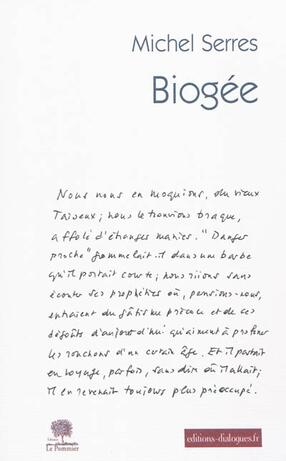 Michel Serres
Biogée
Nous nous en moquions, du vieux
Taiseux ; nous le trouvions braque,
affolé d'étranges manies. "Danger
proche" grommelait-il dans une barbe
qu'il portait courte ; nous riions sans
écouter ses prophéties où, pensions-nous,
entraient du gâtisme précoce et de ces
dégoûts d'aujourd'hui qu'aiment à proférer
les ronchons d'un certain âge. Et il partait
en voyage, parfois, sans dire où il allait ;
il en revenait toujours plus préoccupé.
Le Pommier
editions-dialogues.fr